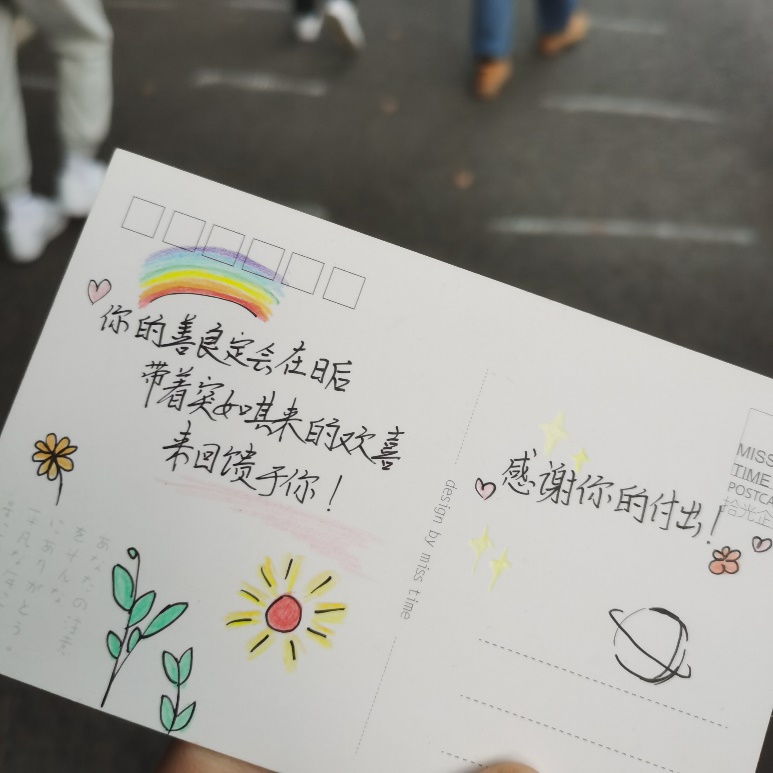 你的善良定会在日后
带着突如其来的欢喜
来回馈于你！
design by miss time
感谢你的付出！
MISS
TIME
POSTCA
拾光企